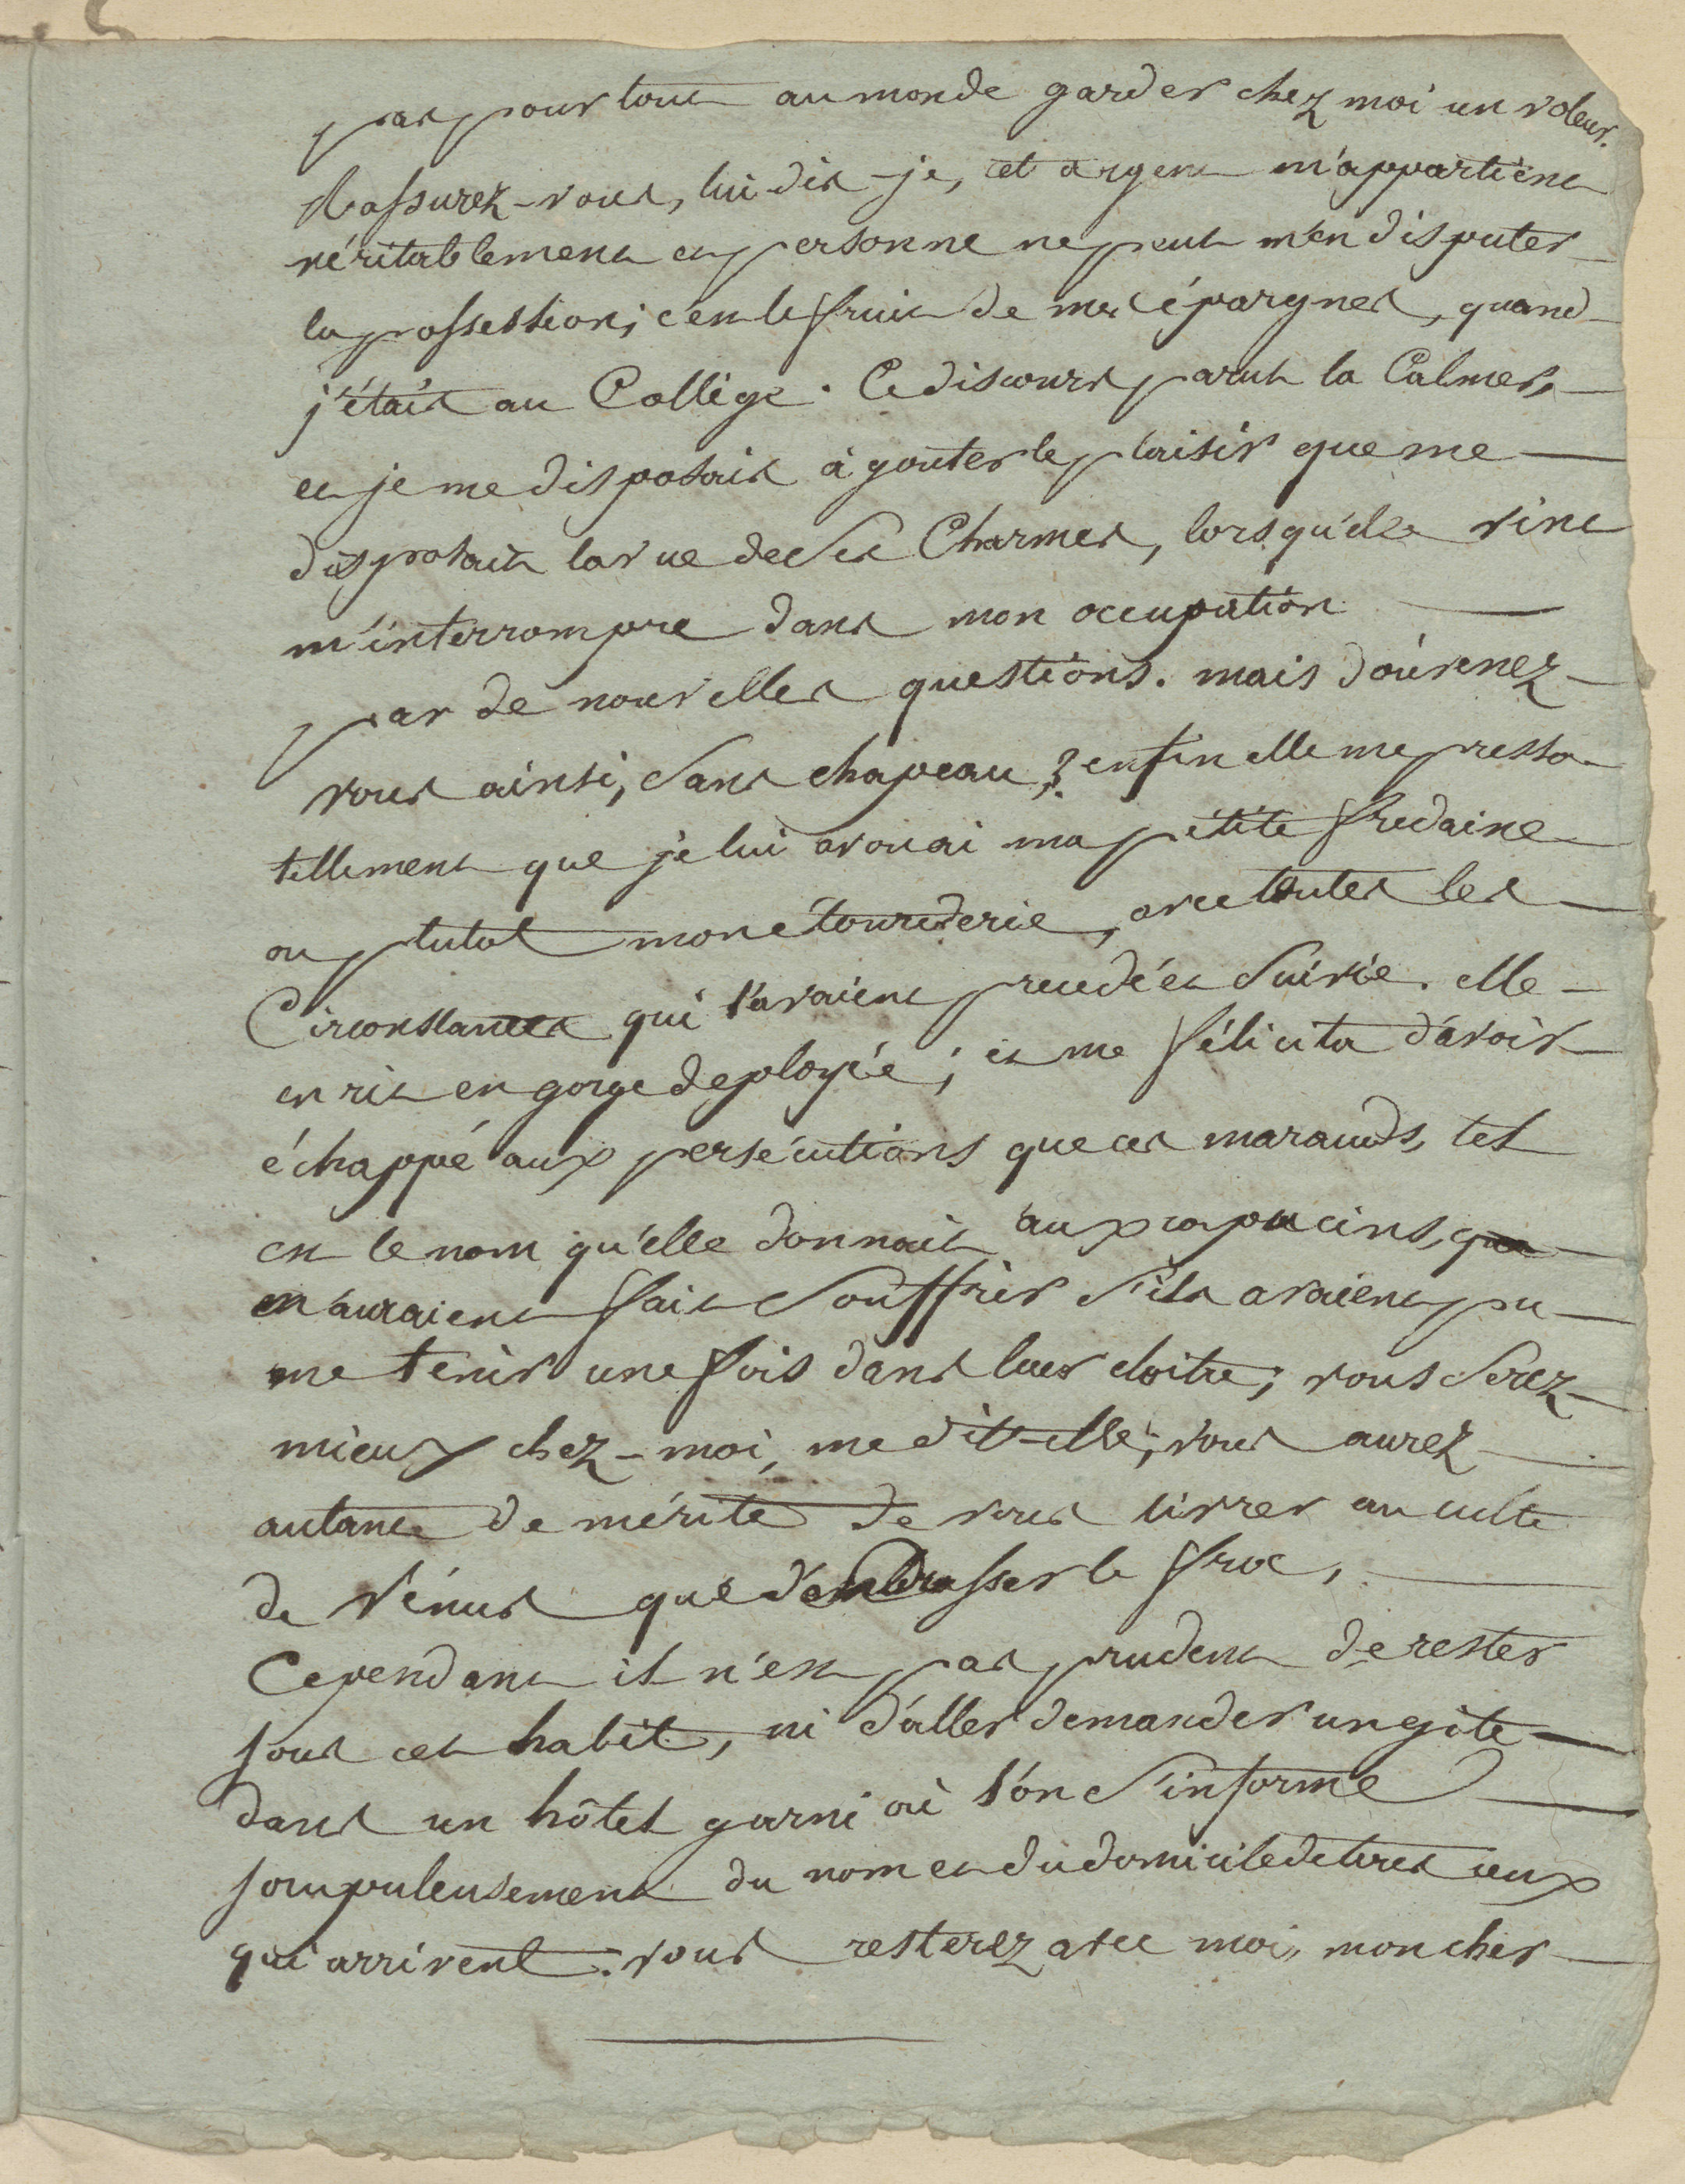 pas pour tout au monde garder chez moi un voleur.
Rassurez-vous, lui dis-je, cet argent m'appartient
véritablement et personne ne peut m'en disputer
la possession; c'est le fruit de mes épargnes, quand
j'étais au Collège. Ce discours parut la Calmer,
et je me disposais à gouter le plaisir que me
disposait la vue de ses Charmes, lorsqu'elle vint
m'interrompre dans mon occupation
par de nouvelles questions. mais d'où venez-
vous ainsi, sans chapeau,? enfin elle me pressa
tellement que je lui avouai ma petite fredaine
ou plutot mon étourderie, avec toutes les
Circonstances qui l'avaient precedé et suivie. elle
en rit en gorge deployée; et me félicita d'avoir
échappé aux persécutions que ces marauds, tel
est le nom qu'elle donnait aux capucins,
m'auraient fait souffrir s'ils avaient pu
me tenir une fois dans leur cloitre; vous serez
mieux chez-moi, me dit-elle; vous aurez
autant de mérite de vous livrer au culte
de Vénus que d'embrasser le froc,
Cependant il n'est pas prudent de rester
sous cet habit, ni d'aller demander un gite
dans un hôtel garni où l'on s'informe
scrupuleusement du nom et du domicile de tous ceux
qui arrivent. vous resterez avec moi, mon cher